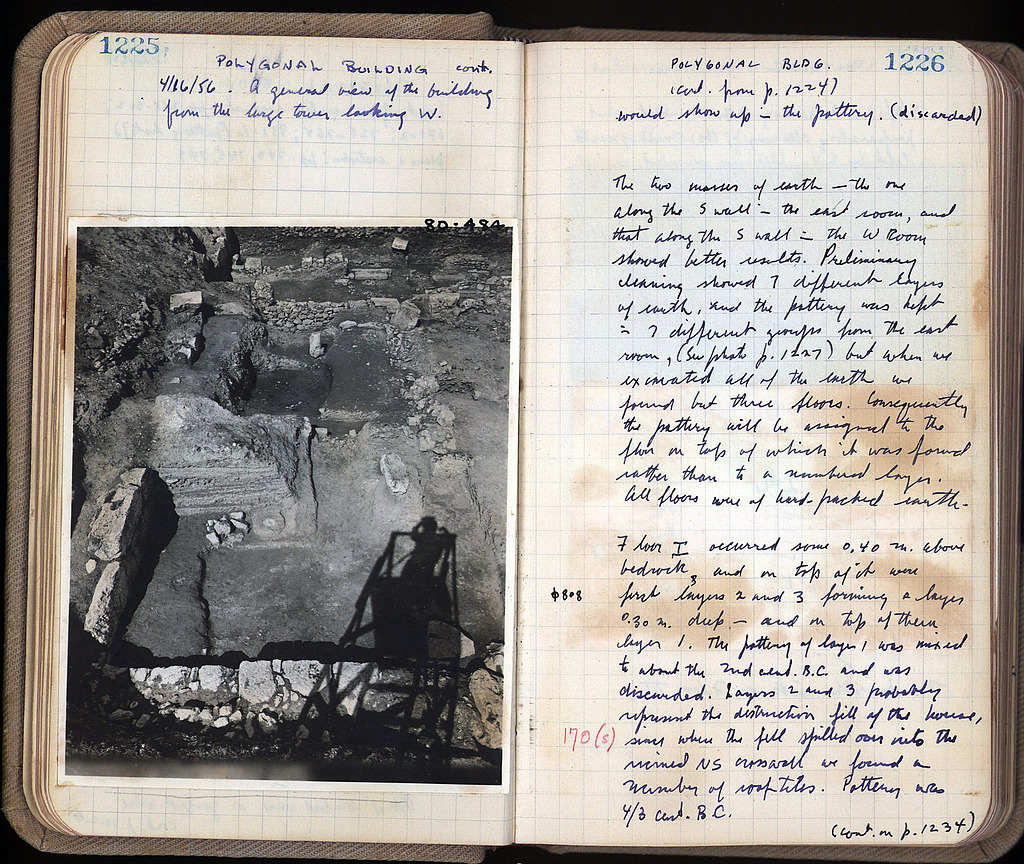 1225
POLYGONAL BUILDING cont.
4/16/56. A general view of the building
from the large tower looking W.
8D-484
1226
POLYGONAL BLDG.
(cont. from p. 1224)
would show up — the pottery. (discarded)
The two masses of earth — the one
along the S wall — the east room, and
that along the S wall — the W Room
showed better results. Preliminary
cleaning showed 7 different layers
of earth, and the pottery was kept
in 7 different groups from the east
room, (See photo p. 1227) but when we
excavated all of the earth we
found but three floors. Consequently
the pottery will be assigned to the
floor on top of which it was found
rather than to a numbered layer.
All floors were of hard-packed earth.
Floor I occurred some 0.40 m. above
bedrock, and on top of it were
first layers 2 and 3 forming a layer
0.30 m. deep — and on top of them
layer 1. The pottery of layer 1 was mixed
to about the 2nd cent. B.C. and was
discarded. Layers 2 and 3 probably
represent the destruction fill of the house,
since where the fill spilled over into the
ruined NS crosswall we found a
number of rooftiles. Pottery was
4/3 cent. B.C.
(cont. on p. 1234)
ф808
170(s)